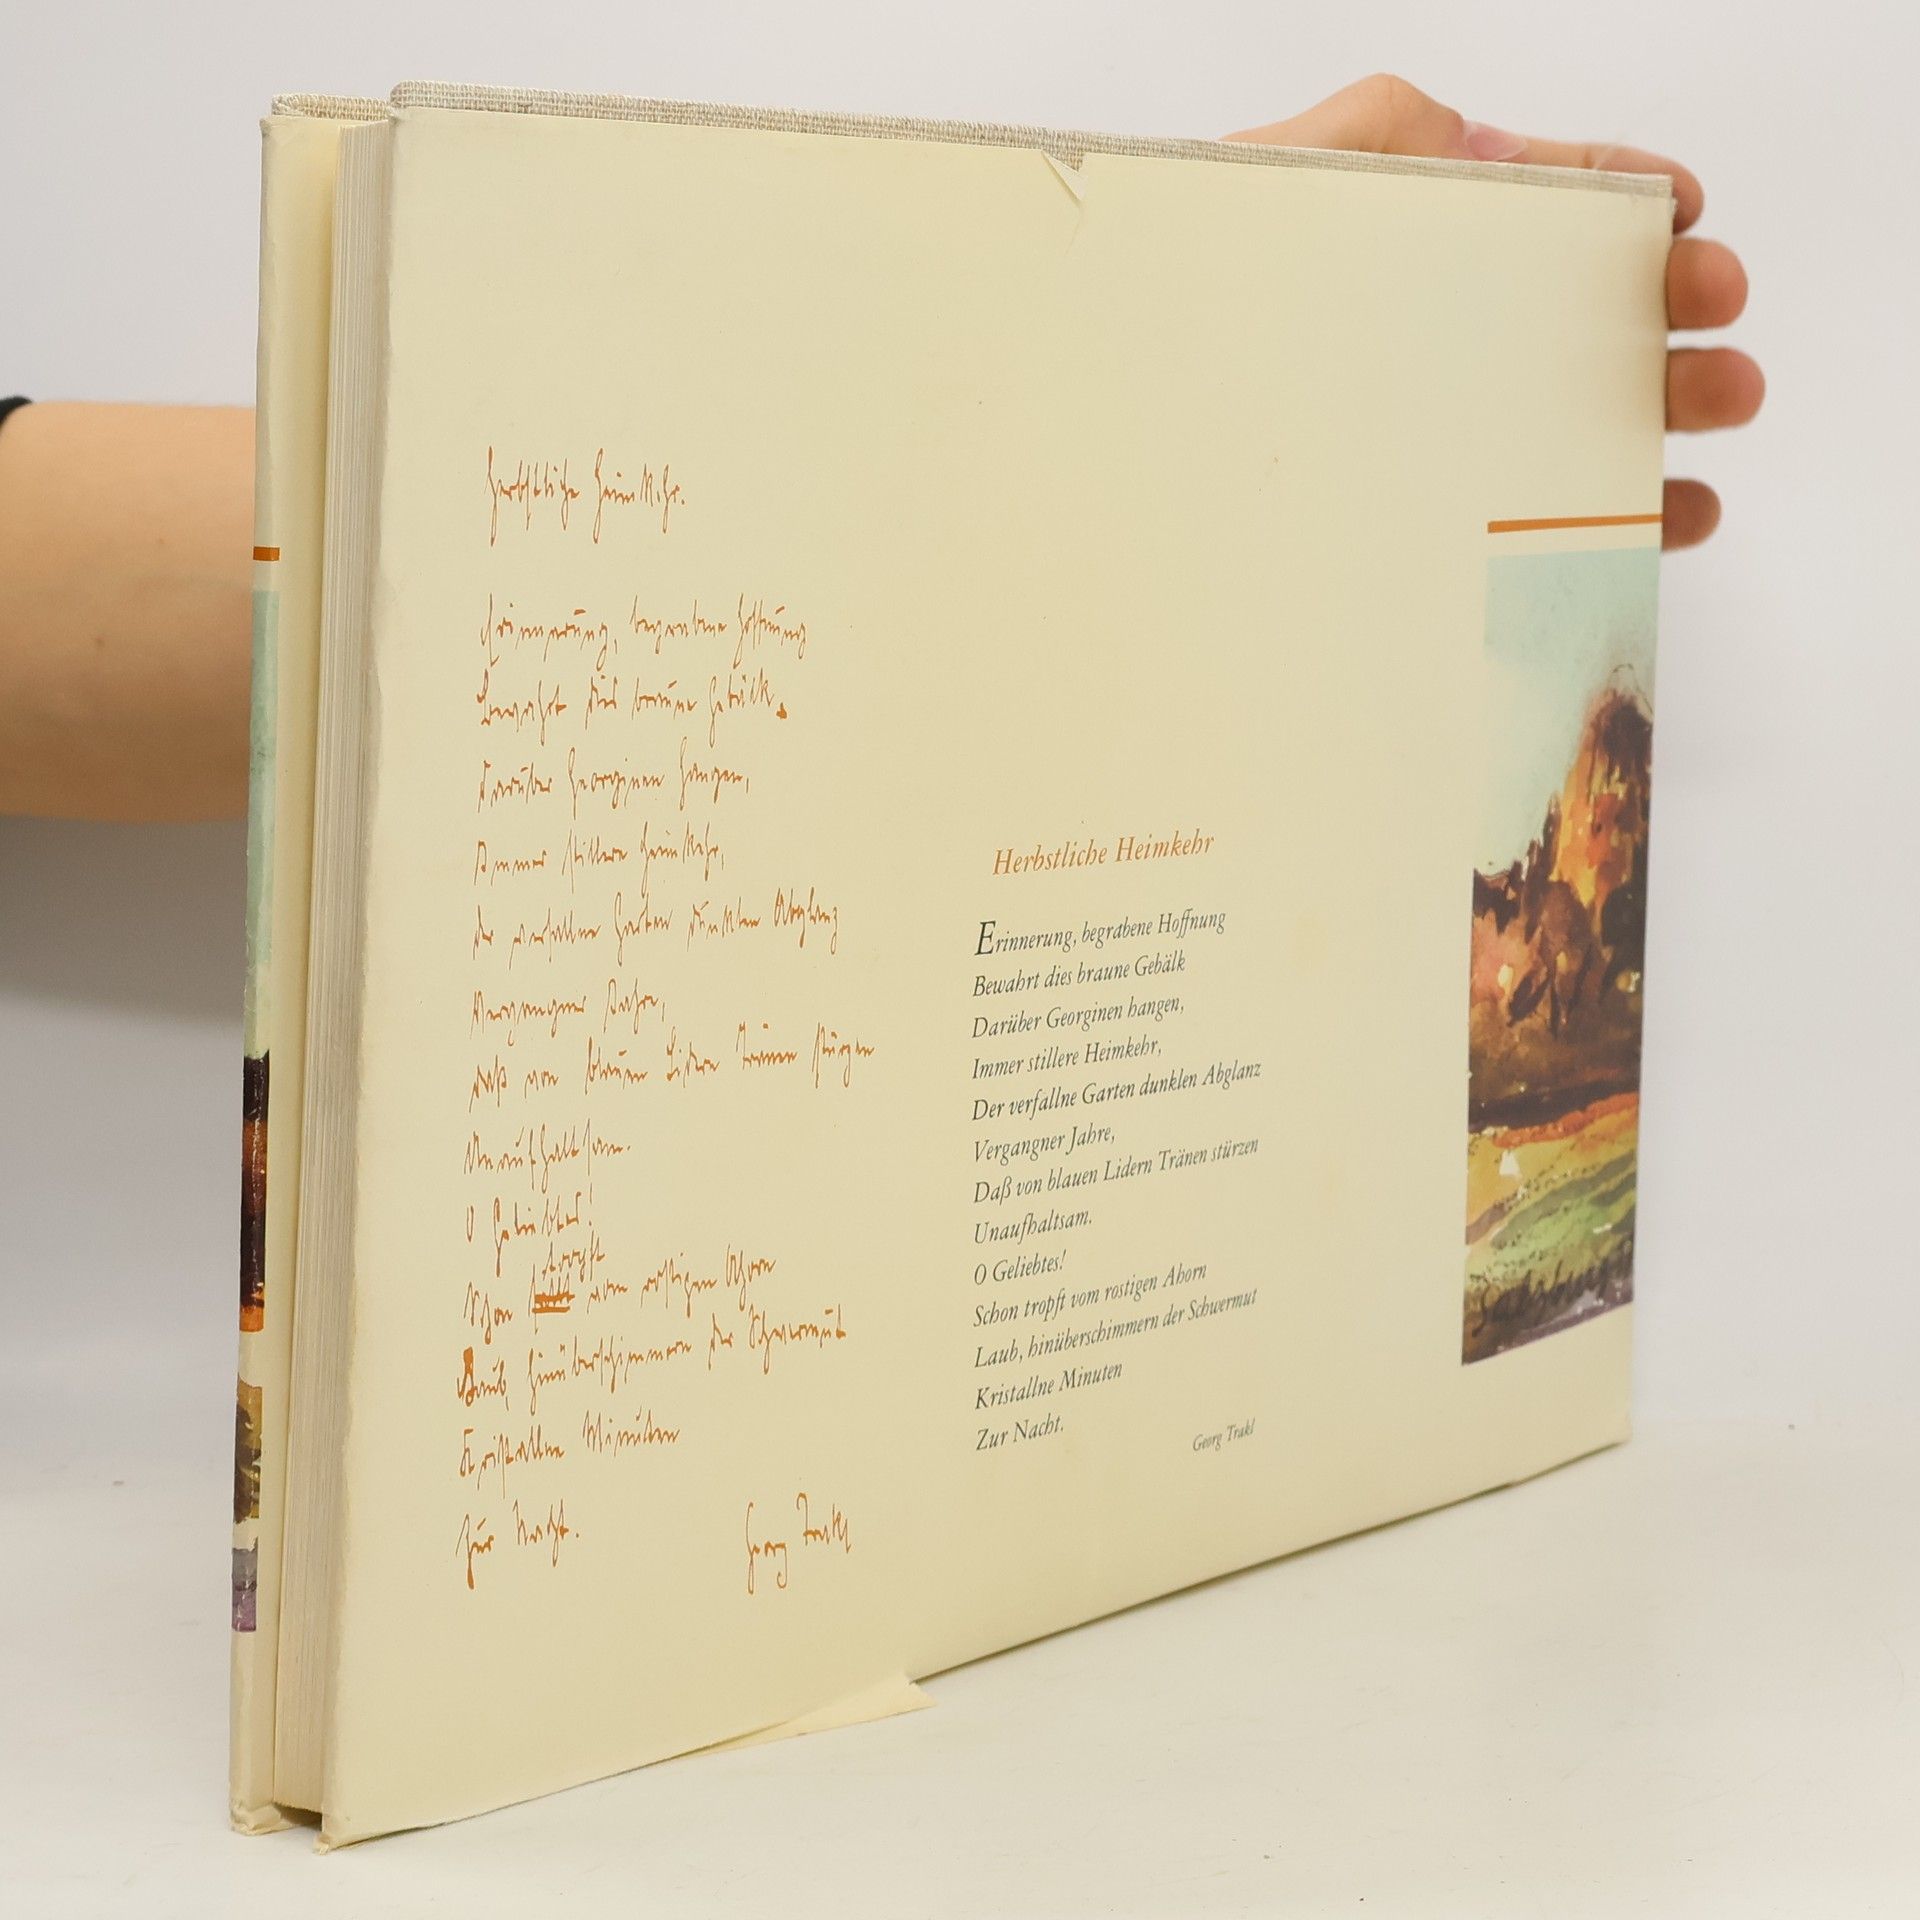 Herbstliche Heimkehr.
Erinnerung, begrabene Hoffnung
Bewahrt dies braune Gebälk.
Darüber Georginen hangen,
Immer stillere Heimkehr,
Der verfallne Garten dunklen Abglanz
Vergangner Jahre,
Daß von blauen Lidern Tränen stürzen
Unaufhaltsam.
O Geliebtes!
tropft
Schon fällt vom rostigen Ahorn
Laub, hinüberschimmern der Schwermut
Kristallne Minuten
Zur Nacht.
Georg Trakl
Herbstliche Heimkehr
Erinnerung, begrabene Hoffnung
Bewahrt dies braune Gebälk
Darüber Georginen hangen,
Immer stillere Heimkehr,
Der verfallne Garten dunklen Abglanz
Vergangner Jahre,
Daß von blauen Lidern Tränen stürzen
Unaufhaltsam.
O Geliebtes!
Schon tropft vom rostigen Ahorn
Laub, hinüberschimmern der Schwermut
Kristallne Minuten
Zur Nacht.
Georg Trakl
Salzburg